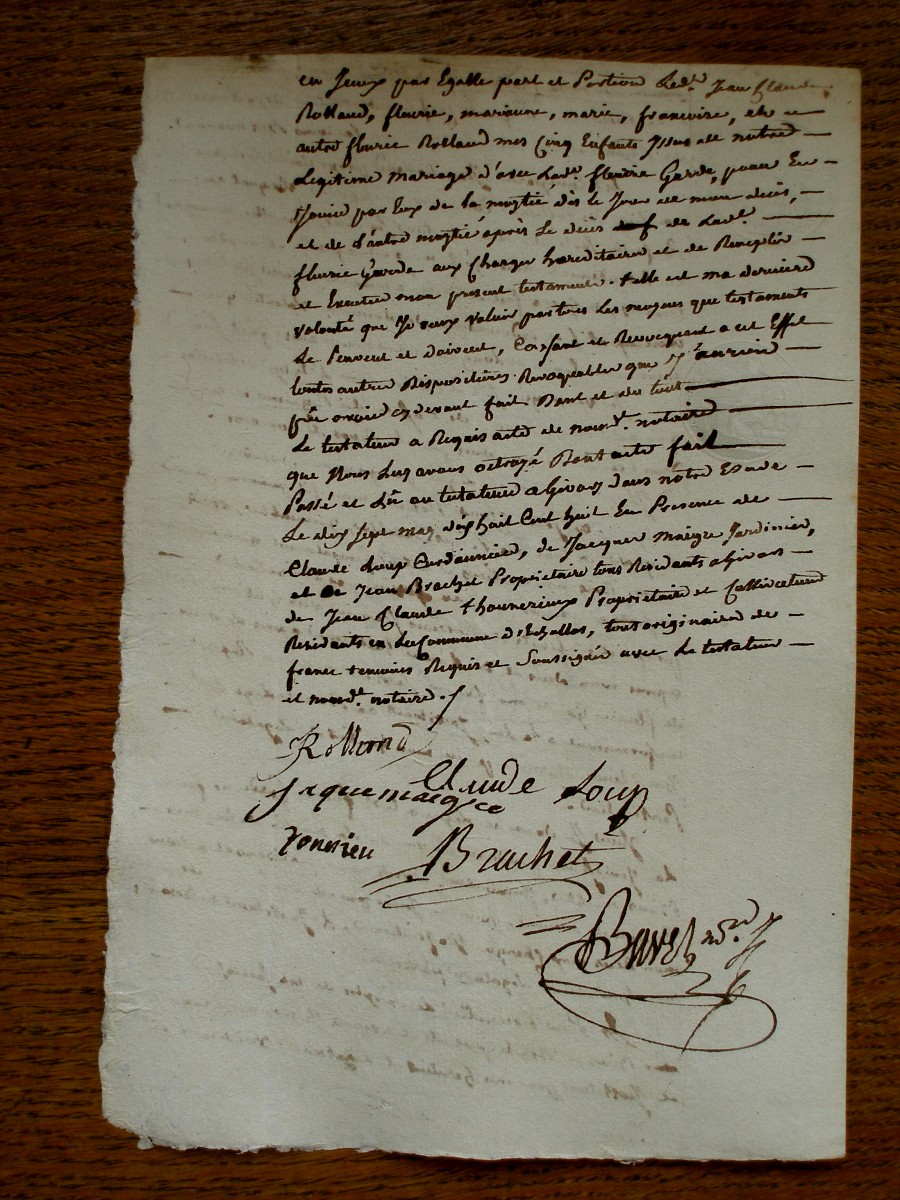 en Jceux par Egalle part et Portion led.t Jean Claude
Rolland, fleurie, marianne, marie, francoise, et
autre fleurie Rolland mes Cinq Enfants Issus de notre
Legitime mariage d'avec Lad.e fleurie Garde, pour En
Jouir par Eux de la moytié dès le Jour de mon décès,
et de l'autre moytié après le décès de Lad.e
fleurie Garde aux Charges hereditaires et de Remplir
et Executer mon present testament. telle est ma derniere
volonté que Je veux valoir par tous Les moyens que testaments
Le Peuvent et doivent, Cassant et Revocquant a cet Effet
touttes autres Dispositions Revoquables que J'aurien
pu avoir cy devant fait. Dont et du tout
Le testateur a Requis acte de nousd.t notaire
que Nous Luy avons octroyé Dont acte fait
Passé et Lû au testateur a Givors dans notre Etude
Le dix sept may dix huit Cent huit En Presence de
Claude Loup Cordonnier, de Jacques Maigre Jardinier,
et de Jean Brachet Proprietaire tous Residants a Givors
de Jean Claude thounerieux Proprietaire et Cultivateur
Residants en La Commune d'Echallas, tous originaires de
france temoins Requis et Soussignés avec Le testateur
et nousd.t notaire.
Rolland
Claude Loup
Jaque maigre
tonerieu
Brachet